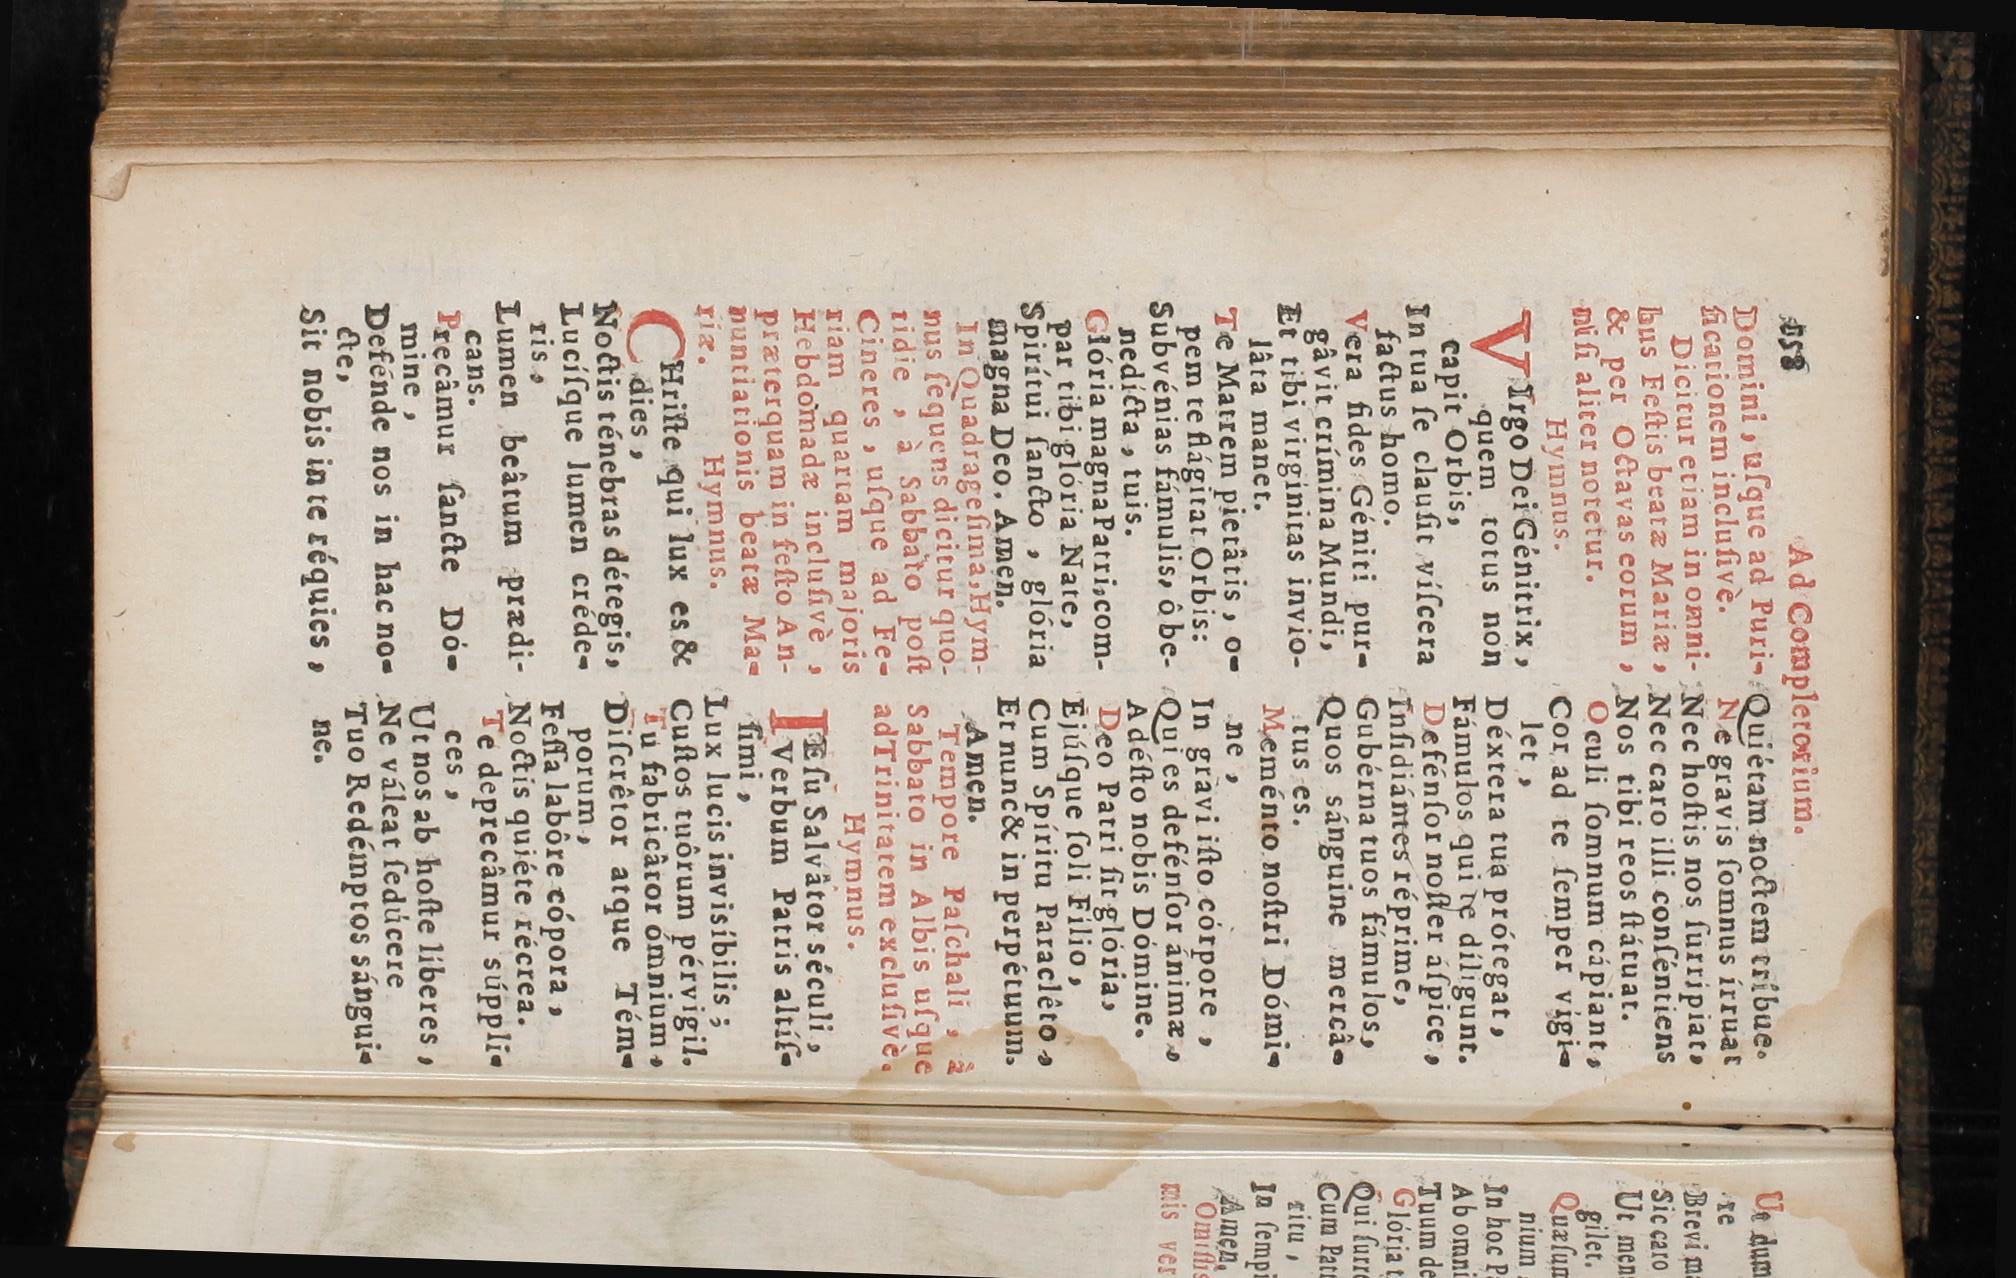 158
Ad Completorium.
Domini, uſque ad Puri-
ficationem incluſivè.
Dicitur etiam in omni-
bus Feſtis beatæ Mariæ,
& per Octavas eorum,
niſi aliter notetur.
Hymnus.
VIrgo Dei Génitrix,
quem totus non
capit Orbis,
In tua ſe clauſit víſcera
factus homo.
Vera fides Géniti pur-
gâvit crímina Mundi,
Et tibi virgínitas invio-
lâta manet.
Te Matrem pietâtis, o-
pem te flágitat Orbis:
Subvénias fámulis, ô be-
nedícta, tuis.
Glória magna Patri, com-
par tibi glória Nate,
Spirítui ſancto, glória
magna Deo. Amen.
In Quadrageſima, Hym-
nus ſequens dicitur quo-
ridie, à Sabbato poſt
Cineres, uſque ad Fe-
riam quartam majoris
Hebdomadæ incluſivè,
præterquam in feſto An-
nuntiationis beatæ Ma-
riæ. Hymnus.
CHriſte qui lux es &
dies,
Noctis ténebras détegis,
Lucíſque lumen créde-
ris,
Lumen beâtum prædi-
cans.
Precâmur ſancte Dó-
mine,
Defénde nos in hac no-
cte,
Sit nobis in te réquies,
Quiétam noctem tríbue.
Ne gravis ſomnus írruat
Nec hoſtis nos ſurripiat,
Nec caro illi conſéntiens
Nos tibi reos ſtátuat.
Oculi ſomnum cápiant,
Cor ad te ſemper vigi-
let,
Déxtera tua prótegat,
Fámulos qui te díligunt.
Defénſor noſter áſpice,
Inſidiántes réprime,
Gubérna tuos fámulos,
Quos sánguine mercâ-
tus es.
Meménto noſtri Dómi-
ne,
In gravi iſto córpore,
Qui es defénſor ánimæ,
Adéſto nobis Dómine.
Deo Patri ſit glória,
Ejúſque ſoli Filio,
Cum Spíritu Paraclêto,
Et nunc & in perpétuum.
Amen.
Tempore Paſchali, à
Sabbato in Albis uſque
ad Trinitatem excluſivè.
Hymnus.
IEſu Salvâtor séculi,
Verbum Patris altíſ-
ſimi,
Lux lucis invisíbilis;
Cuſtos tuôrum pérvigil.
Tu fabricâtor ómnium,
Diſcrêtor atque Tém-
porum,
Feſſa labôre cópora,
Noctis quiéte récrea.
Te deprecâmur súppli-
ces,
Ut nos ab hoſte líberes,
Ne váleat ſedúcere
Tuo Redémptos sángui-
ne.
Ut dum
re
Brevi
Sic caro
Ut men
gilet.
Quæſu
nium
In hoc
Ab omni
Tuum de
Glória
Qui ſurre
Cum Pat
ritu,
In ſempi
Amen.
Omiſſis
mis ver